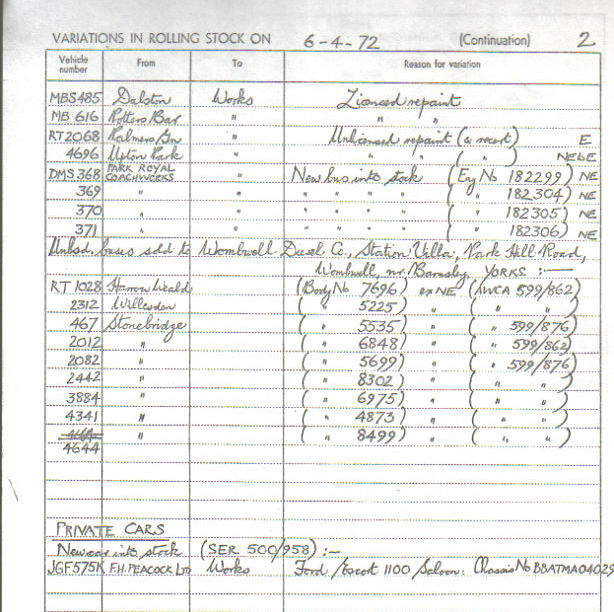 VARIATIONS IN ROLLING STOCK ON 6-4-72 (Continuation) 2
Vehicle number From To Reason for variation
MBS485 Dalston Works Licenced repaint
MB 616 Potters Bar " " "
RT2068 Palmers Gn " Unlicenced repaint (& recert) E
4696 Upton Park " " " ( " ) NEBE
DMS368 PARK ROYAL COACHWORKS " New bus into stock (Eng No 182299) NE
369 " " " " " " ( " 182304) NE
370 " " " " " " ( " 182305) NE
371 " " " " " " ( " 182306) NE
Unlicsd. buses sold to Wombwell Diesel C., Station Villa, Park Hill Road,
Wombwell, nr. Barnsley, YORKS :—
RT 1028 Harrow Weald (Body No 7696) ex NE (AWCA 599/862)
2312 Willesden ( " 5225) " ( " " )
467 Stonebridge ( " 5535) " ( " 599/876)
2012 " ( " 6848) " ( " 599/862)
2082 " ( " 5699) " ( " 599/876)
2442 " ( " 8302) " ( " " )
3884 " ( " 6975) " ( " " )
4341 " ( " 4873) " ( " " )
4644 " ( " 8499) " ( " " )
PRIVATE CARS
New car into stock (SER 500/958) :—
JGF575K F.H. PEACOCK LTD Works Ford Escort 1100 Saloon: Chassis No BBATMA04029